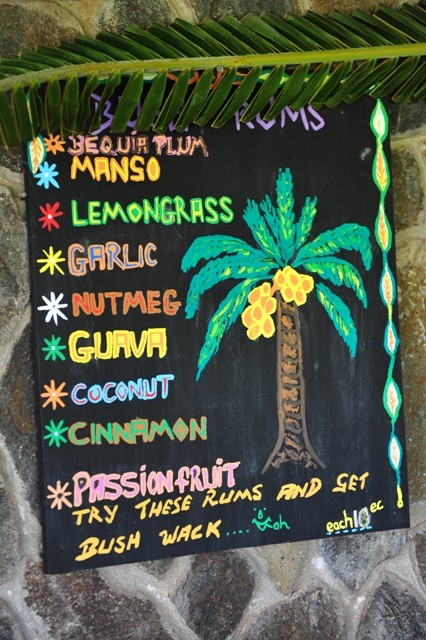 RUMS
BEQUIA PLUM
MANSO
LEMONGRASS
GARLIC
NUTMEG
GUAVA
COCONUT
CINNAMON
PASSIONFRUIT
TRY THESE RUMS AND GET
BUSH WACK.... ah
each 10 ec